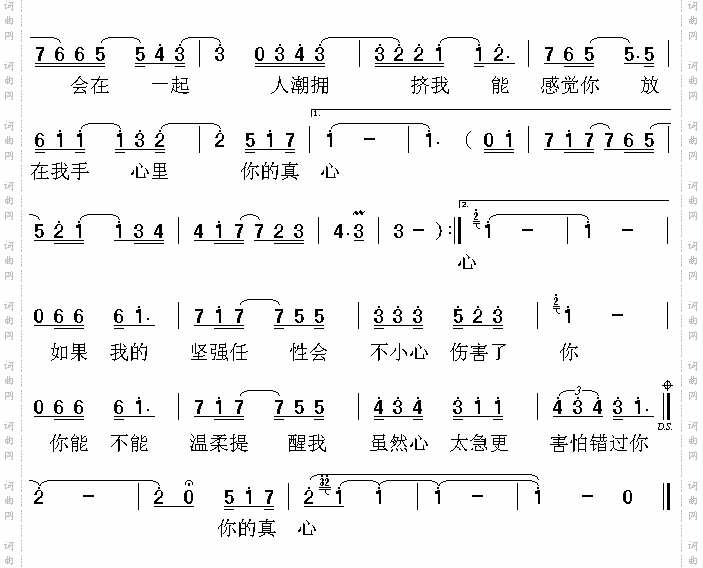 7 6 6 5 5 4 3 | 3 0 3 4 3 | 3 2 2 1 1 2. | 7 6 5 5. 5 |
会在 一起 人潮拥 挤我 能 感觉你 放
6 1 1 1 3 2 | 2 5 1 7 | 1. 1 - | 1. ( 0 1 | 7 1 7 7 6 5 |
在我手 心里 你的真 心
5 2 1 1 3 4 | 4 1 7 7 2 3 | 4. 3 | 3 - ) :| 2. 2 1 - | 1 - |
心
0 6 6 6 1. | 7 1 7 7 5 5 | 3 3 3 5 2 3 | 2 1 - |
如果 我的 坚强任 性会 不小心 伤害了 你
0 6 6 6 1. | 7 1 7 7 5 5 | 4 3 4 3 1 1 | 3 4 3 4 3 1. |
D.S.
你能 不能 温柔提 醒我 虽然心 太急更 害怕错过你
2 - | 2 0 5 1 7 | 2 32 1 1 | 1 - | 1 - 0 |
你的真 心
词曲网